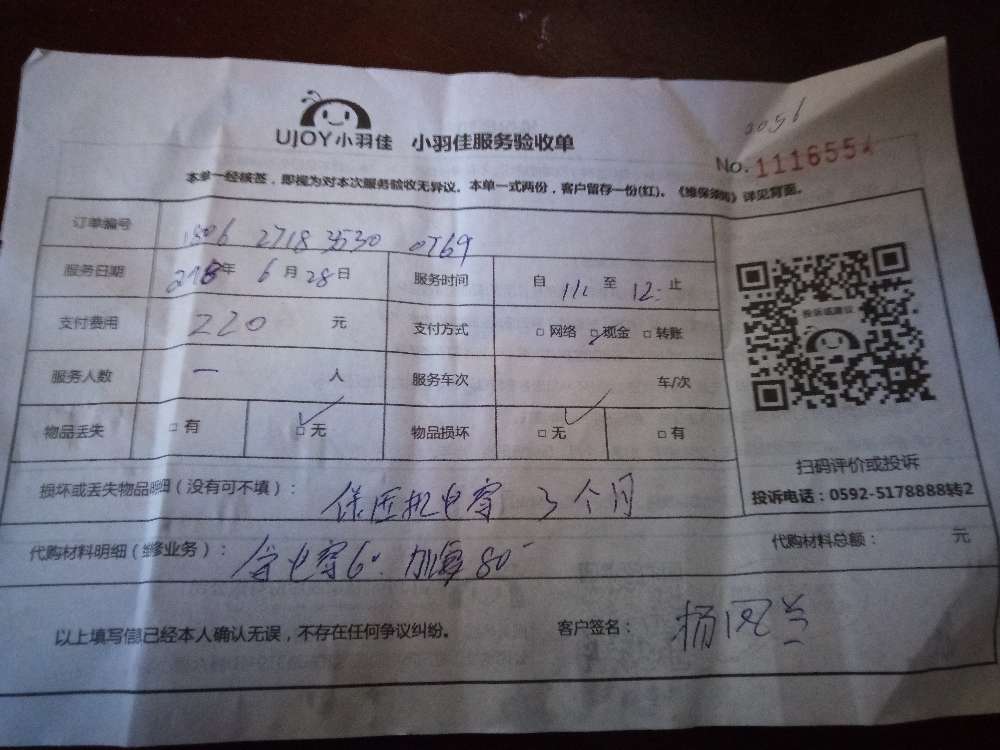 UJOY小羽佳 小羽佳服务验收单
2056
No. 111655
本单一经核签，即视为对本次服务验收无异议。本单一式两份，客户留存一份(红)。《维保条例》详见背面。
订单编号 1806 2718 3530 0T69
服务日期 2018年 6月 28日 服务时间 自 11: 至 12: 止
支付费用 220 元 支付方式 □ 网络 □ 现金 □ 转账
服务人数 一 人 服务车次 车/次
物品丢失 □ 有 □ 无 物品损坏 □ 无 □ 有
投诉或建议
扫码评价或投诉
投诉电话：0592-5178888转2
损坏或丢失物品明细（没有可不填）： 保压机电容 3个月
代购材料明细（维修业务）： 含电容60 加氟80 代购材料总额： 元
以上填写信息已经本人确认无误，不存在任何争议纠纷。 客户签名： 杨凤兰